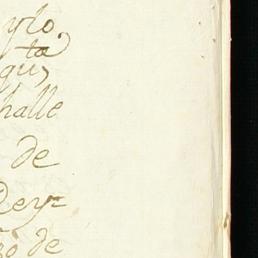 ylo
ta
qu,
halle
de
Rey=
so de